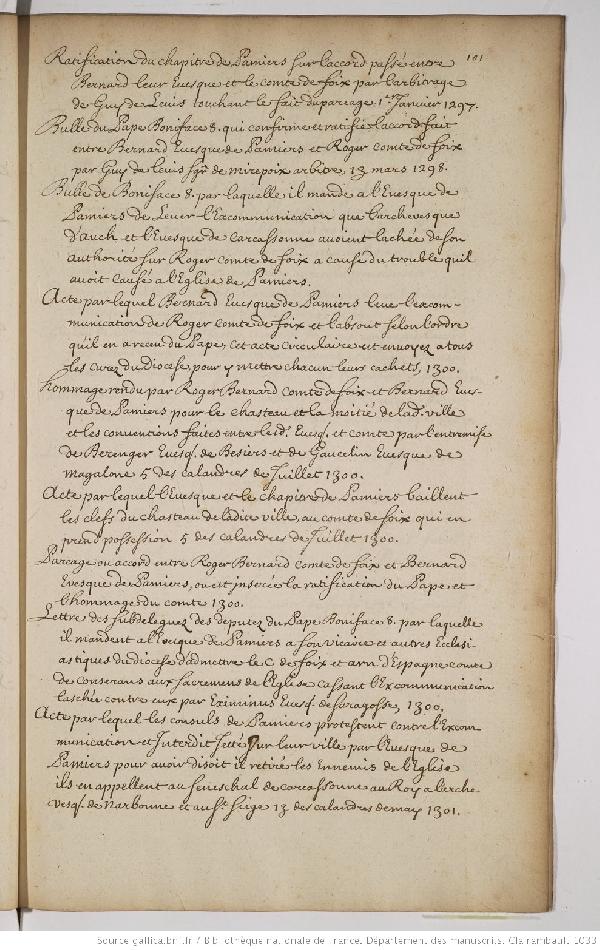 101
Ratification du chapitre de Pamiers sur laccord passé entre
Bernard leur Euesque et le comte de foix par larbitrage
de Guy de Leuis touchant le fait du pareage 1er Janvier 1297.
Bulle du Pape Boniface 8. qui confirme et ratifie laccord fait
entre Bernard Euesque de Pamiers et Roger comte de foix
par Guy de leuis sgr de mirepoix arbitre, 13 mars 1298.
Bulle de Boniface 8. par laquelle il mande a l'Euesque de
Pamiers de Leuer l'Excommunication que larchevesque
d'auch et l'Euesque de Carcassonne auoient lachée de son
authorité sur Roger comte de foix a causé du trouble quil
auoit causé a l'Eglise de Pamiers.
Acte par lequel Bernard Euesque de Pamiers leue lexcom-
munication de Roger comte de foix et l'absout selon lordre
quil en a receu du Pape, cet acte circulaire et envoyez a tous
les curez du diocese pour y mettre chacun leurs cachets, 1300.
hommage rendu par Roger Bernard Comte de foix et Bernard Eues-
que de Pamiers pour le chasteau et la moitié de lad. ville
et les conuentions faites entre lesd. Euesq. et comte par l'entremise
de Berenger Euesq. de Besiers et de Gaucelin Euesque de
magalone 5 des calandres de Juillet 1300.
Acte par lequel l'Euesque et le chapitre de Pamiers baillent
les clefs du chasteau de ladite ville, au comte de foix qui en
prend possession 5 des calandres de Juillet 1300.
Pareage ou accord entre Roger Bernard Comte de foix et Bernard
Evesque de Pamiers, ou est inserée la ratification du Pape et
l'hommage du comte 1300.
Lettre des subdeleguez des deputez du Pape Boniface 8. par laquelle
il mandent a l'Eveque de Pamiers a son vicaire et autres Ecclesi-
astiques du diocese d'admettre le C de foix et arn. d'Espagne comte
de Conserans aux sacremens de l'Eglise cassant l'Excommunication
laschée contre eux par Eximinus Euesq. de saragosse, 1300.
Acte par lequel les consuls de Pamiers protestent contre l'Excom
munication et Interdit Jettés sur leur ville par l'Euesque de
Pamiers pour avoir disoit il retiré les Ennemis de l'Eglise
ils en appellent au seneschal de carcassonne au Roy a l'arche-
vesq. de Narbonne et au St siege 13 des calandres de may 1301.
Source gallica.bnf.fr / Bibliothèque nationale de France. Département des manuscrits. Clairambault 1033